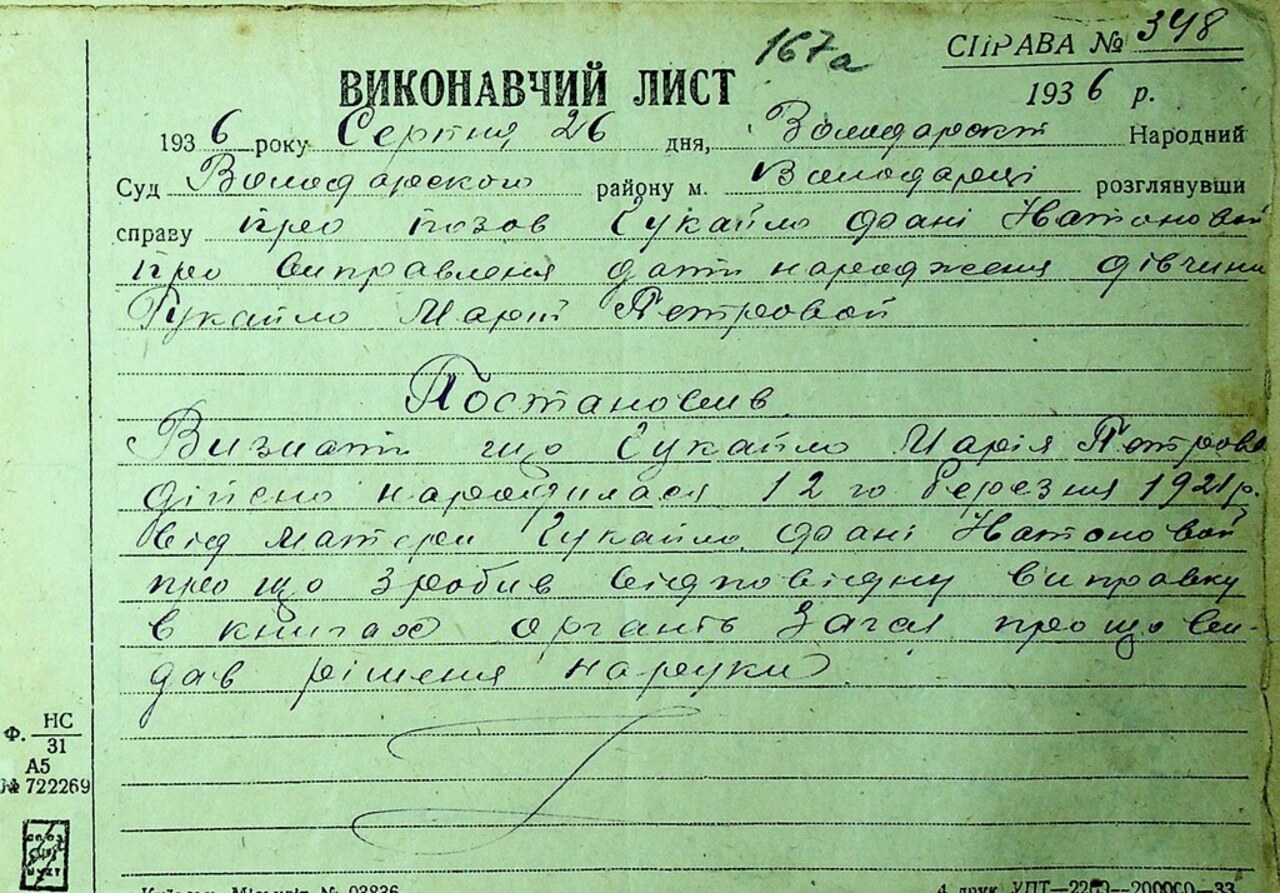 167а
СПРАВА № 348
ВИКОНАВЧИЙ ЛИСТ
1936 р.
1936 року Серпня 26 дня, Володарский Народний
Суд Володарского району м. Володарці розглянувши
справу про позов Чукайло Фані Натоновой
про виправленя дати народженя дівчини
Чукайло Марії Петровой
Постановив
Визнати що Чукайло Марія Петрова
дійсно народилася 12 го березня 1921 р.
від матери Чукайло Фані Натоновой
про що зробив відповідну виправку
в книгах органів Загса, про що ви-
дав рішеня на руки
Ф. НС
31
А5
№ 722269
4 друк. УПТ—22
—200000—33